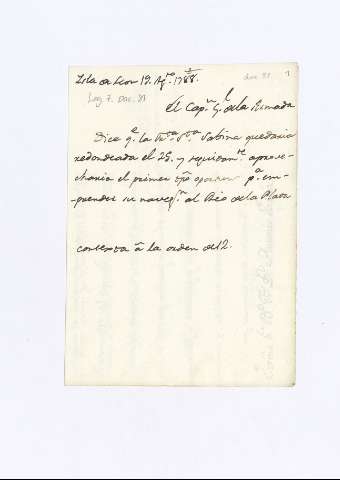 Isla de Leon 19. Agto. 1788.
Leg 7. Doc. 31
doc 31
1
El Capn. Gl. de la Armada
Dice qe. la Fragta. Sta. Sabina quedaria
redondeada el 25. y seguidamte. aprove-
charia el primer tpo. oportuno pa. em-
-prender su navegn. al Rio de la Plata
contexta á la orden del 12.